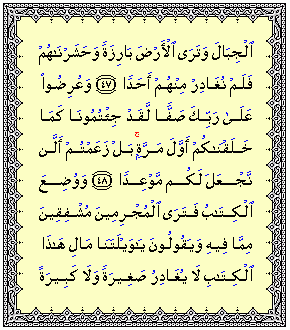 ٱلۡجِبَالَ وَتَرَى ٱلۡأَرۡضَ بَارِزَةً وَحَشَرۡنَٰهُمۡ
فَلَمۡ نُغَادِرۡ مِنۡهُمۡ أَحَدًا ۝٤٧ وَعُرِضُواْ
عَلَىٰ رَبِّكَ صَفًّا لَّقَدۡ جِئۡتُمُونَا كَمَا
خَلَقۡنَٰكُمۡ أَوَّلَ مَرَّةِۭ بَلۡ زَعَمۡتُمۡ أَلَّن
نَّجۡعَلَ لَكُم مَّوۡعِدًا ۝٤٨ وَوُضِعَ
ٱلۡكِتَٰبُ فَتَرَى ٱلۡمُجۡرِمِينَ مُشۡفِقِينَ
مِمَّا فِيهِ وَيَقُولُونَ يَٰوَيۡلَتَنَا مَالِ هَٰذَا
ٱلۡكِتَٰبِ لَا يُغَادِرُ صَغِيرَةً وَلَا كَبِيرَةً